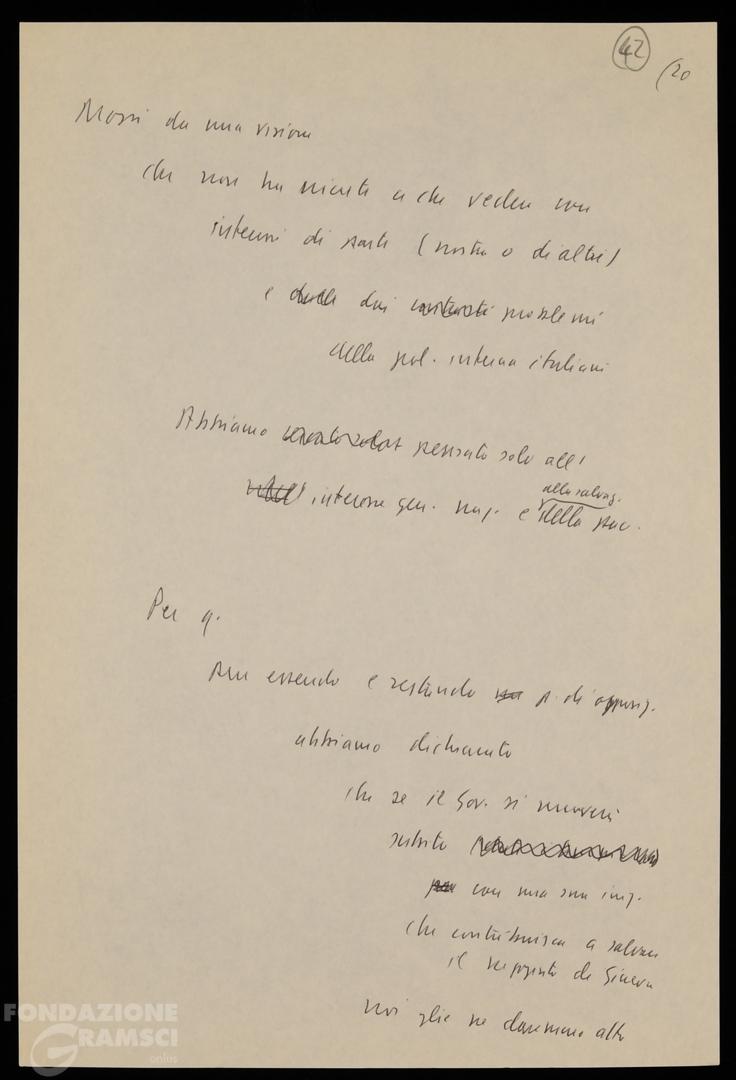 42
(20
Mossi da una visione
che non ha niente a che vedere con
interessi di parte (nostra o di altri)
e dai problemi
della pol. interna italiani
Abbiamo pensato solo all'
interesse gen. naz. e della pac.
alla salvag.
Per q.
pur essendo e restando p. di opposiz.
abbiamo dichiarato
che se il Gov. si muoverà
subito
con una sua iniz.
che contribuisca a salvare
il negoziato di Ginevra
noi glie ne daremmo atto
FONDAZIONE
GRAMSCI
onlus